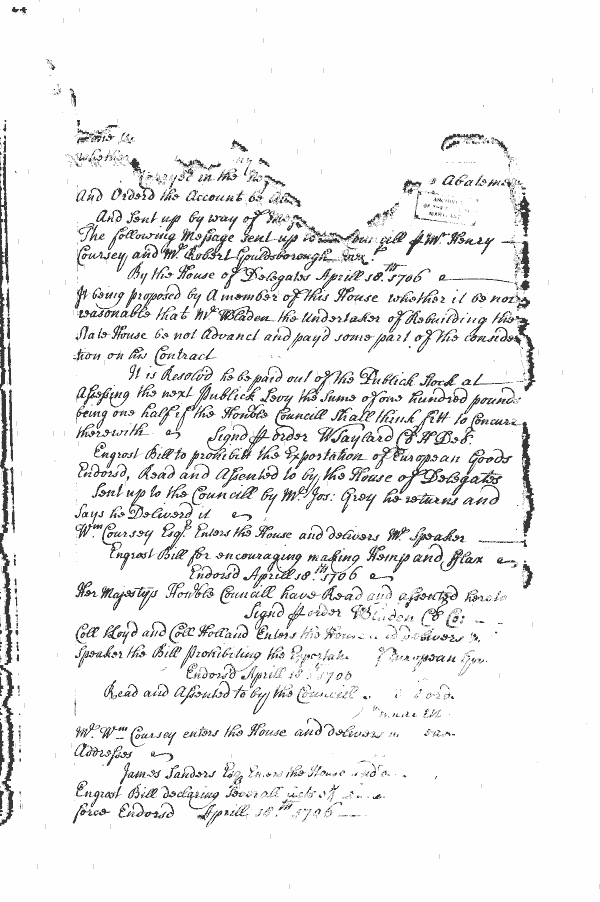 whether
in the
Abateme
And Orderd the Account be
And Sent up by way of
The following Message sent up to Councill p Mr. Henry
Coursey and Mr. Robert Gouldsborough
By the House of Delegates Aprill 18th 1706
It being proposed by a member of this House whether it be not
reasonable that Mr. Bladen the Undertaker of Rebuilding the
State House be not Advanct and payd some part of the consider
tion on his Contract
It is Resolvd he be paid out of the Publick Stock at
Assessing the next Publick Levy the sume of one hundred pounds
being one half if the Honble Councill shall think fitt to Concurr
therewith Signd p order W Taylard Cl H Del:
Engrost Bill to prohibitt the Exportation of European Goods
Endorsd, Read and Assented to by the House of Delegates
Sent up to the Councill by Mr. Jos: Grey he returns and
says he Deliverd it
Wm. Coursey Esqr. Enters the House and delivers Mr. Speaker
Engrost Bill for encouraging making Hemp and fflax
Endorsd Aprill 18th 1706
Her Majestys Honble Councill have Read and assented hereto
Signd p order W Bladen Cl Co:
Coll Lloyd and Coll Holland Enters the House and delivers
Speaker the Bill Prohibiting the Exporta of European
Endorsd Aprill 18th 1706
Read and Assented to by the Councill
Mr. Wm. Coursey enters the House and delivers
Addresses
James Sanders Esqr Enters the House
Engrost Bill declaring severall acts
force Endorsd Aprill 18th 1706